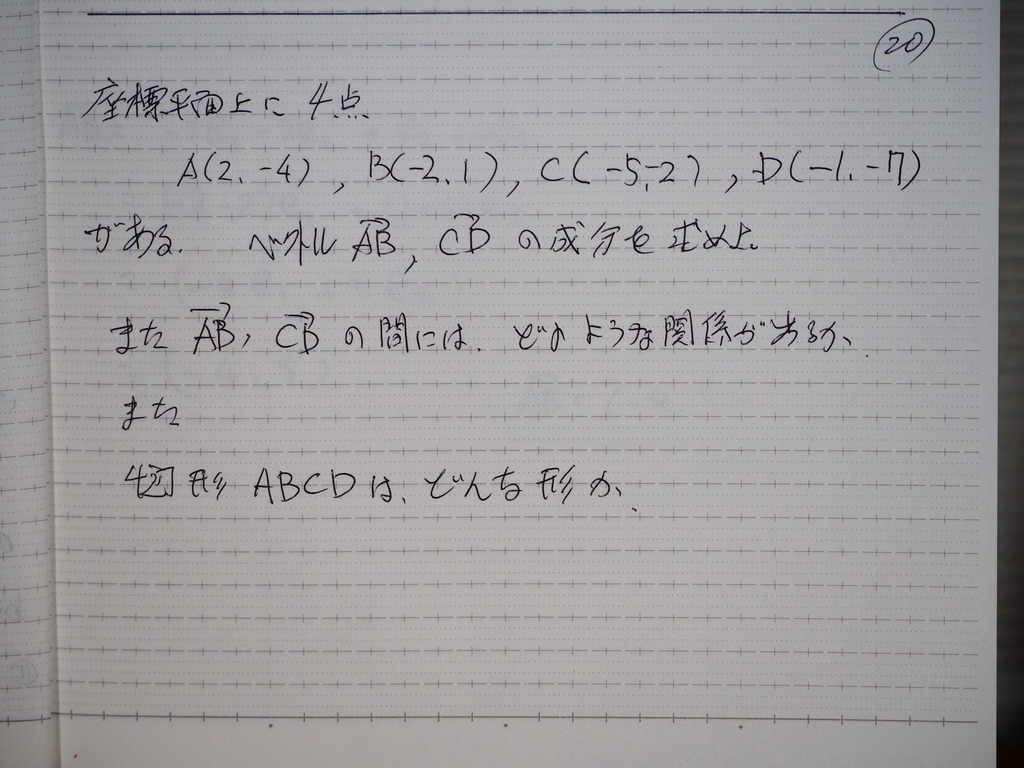 20
座標平面上に 4点
A(2, -4), B(-2, 1), C(-5, -2), D(-1, -7)
がある. ベクトル AB, CD の成分を求めよ.
また AB, CD の間には, どのような関係があるか、
また
4辺形 ABCD は、どんな形か、